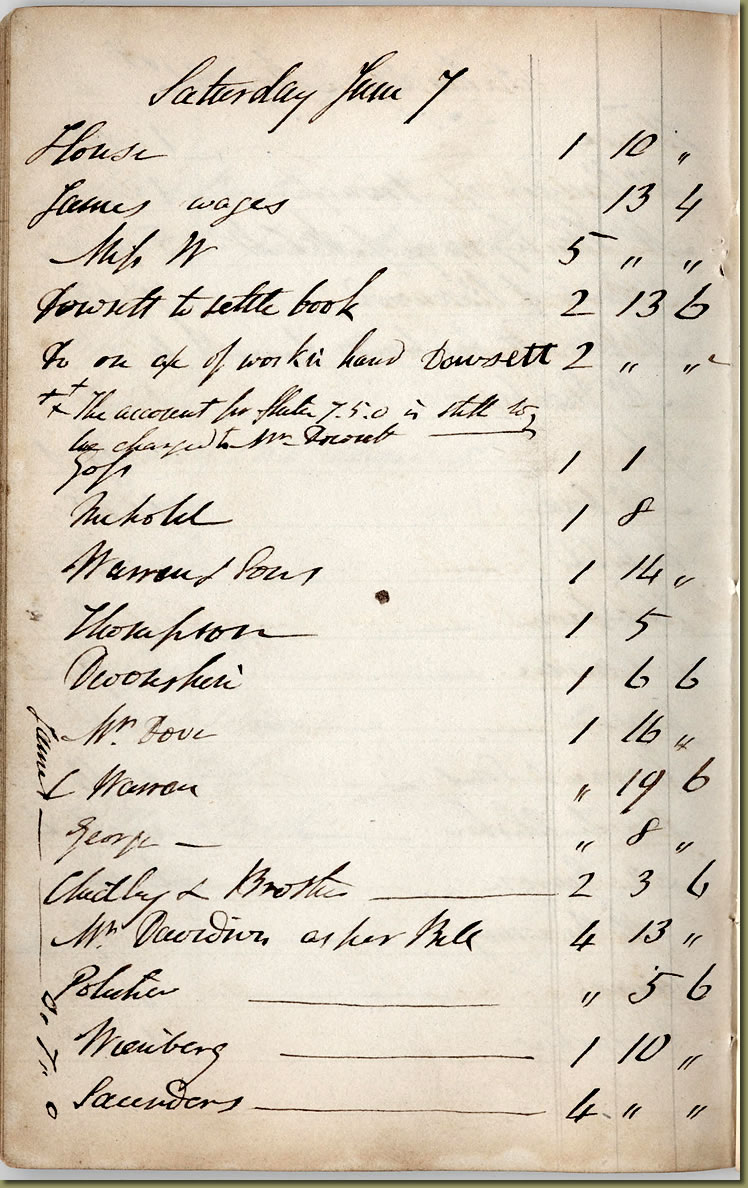 Saturday June 7
House 1 10 "
James wages 13 4
Miss W 5 " "
Dowsett to settle book 2 13 6
Do on a/c of work in hand Dowsett 2 " "
The account for 7.5.0 is still to
be charged to Mr Dowsett
Goss 1 1
Nichold 1 8
Warren & Sons 1 14 "
Thompson 1 5
Devonshire 1 6 6
Mr. Dove 1 16 "
& Warren " 19 6
George " 8 "
Chidley & Brother 2 3 6
Mr. Davidson as per Bill 4 13 "
" 5 6
1 10 "
Saunders 4 " "
James